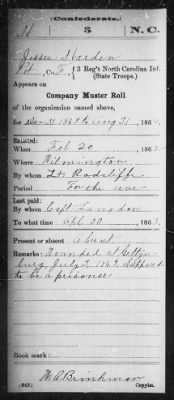 Confederate.
H 3 N.C.
Jessee Harden
Pvt, Co. F, 3 Reg't North Carolina Inf.
(State Troops.)
Appears on
Company Muster Roll
of the organization named above,
for Dec 31 1863 to Aug 31, 1864.
Enlisted:
When Feb 20, 186
Where Wilmington
By whom Lt Radcliffe
Period For the war
Last paid:
By whom Capt Langdon
To what time Apl 30, 1863.
Present or absent Absent
Remarks: Wounded at Gettys
burg July 3 1863 Supposed
to be a prisoner
Book mark:
W. A. Brinkman
(642) Copyist.